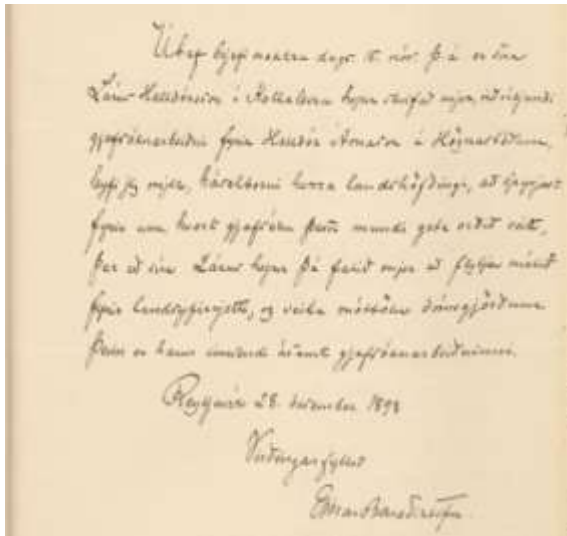 Út af bréfi nokkru dags. 15. nóv. þ. á. er síra
Lárus Halldórsson á Kollaleiru hefur skrifað mjer, viðvíkjandi
gjafsóknarbeiðni fyrir Halldór Árnason á Högnastöðum,
leyfi jeg mjer, hávelborni herra landshöfðingi, að
fyrir um hvort gjafsókn þessi mundi geta orðið veitt,
þar að síra Lárus hefur þá falið mjer að flytja málið
fyrir landsyfirrjetti, og veita móttöku dómsgjörðum
þeim er hann sendi ásamt gjafsóknarbeiðninni.
Reykjavík 28. desember 1898
Virðingarfyllst
Einar Benediktsson.